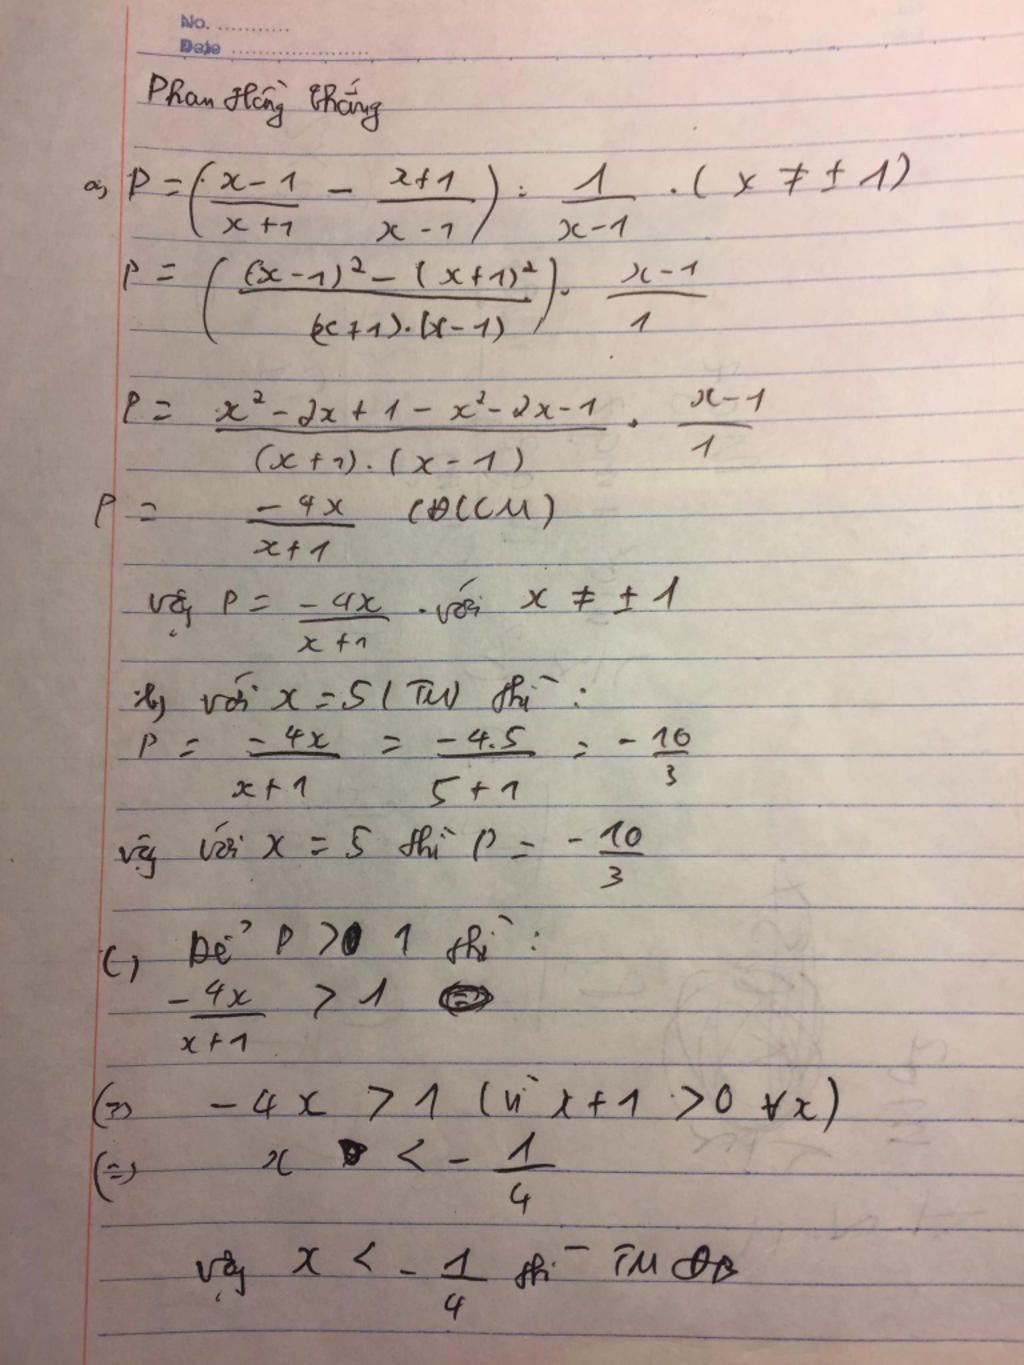 No. ...........
Date .....................
Phan Hồng Thắng
a, P = ((x-1)/(x+1) - (x+1)/(x-1)) : 1/(x-1) . (x ≠ ± 1)
P = (((x-1)² - (x+1)²)/((x+1).(x-1))) . (x-1)/1
P = (x² - 2x + 1 - x² - 2x - 1)/((x+1).(x-1)) . (x-1)/1
P = -4x/(x+1) (ĐCCM)
vậy P = -4x/(x+1) . với x ≠ ± 1
b, với x = 5 (TM) thì :
P = -4x/(x+1) = -4.5/(5+1) = -10/3
vậy với x = 5 thì P = -10/3
c, Để P > 1 thì :
-4x/(x+1) > 1
(=) -4x > 1 (vì x+1 > 0 ∀x)
(=) x < -1/4
vậy x < -1/4 thì TM ĐB